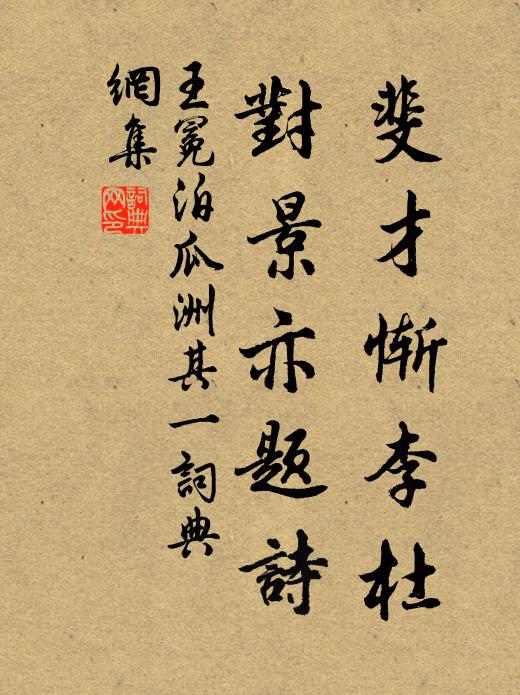 斐才慚李杜
對景亦題詩
王冕泊瓜洲其一詞典
網集
詞典網印